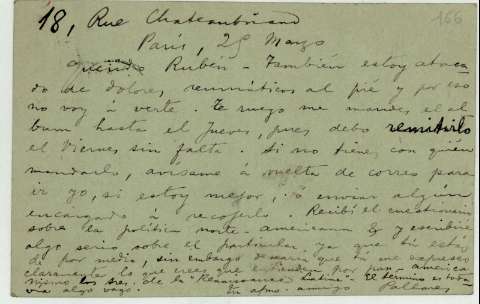 166
18, Rue Chateaubriand
París, 25 Marzo
Querido Rubén - También estoy ataca
do de dolores, reumáticos al pié y por eso
no voy á verte. Te ruego me mandes el al
bum hasta el Jueves, pues debo remitirlo
el Viernes sin falta. Si no tienes con quién
mandarlo, avísame á vuelta de correo para
ir yo, si estoy mejor, ó enviar algún
encargado á recojerlo. Recibí el cuestionario
sobre la política norte-americana y escribiré
algo serio sobre el particular, ya que tú estás
de por medio, sin embargo desearía que tú me expreses
claramente lo que crees que entienden por pan-america
nismo los sres. de la "Renaissance Latine". El término es toda
vía algo vago. Tu afmo. amigo